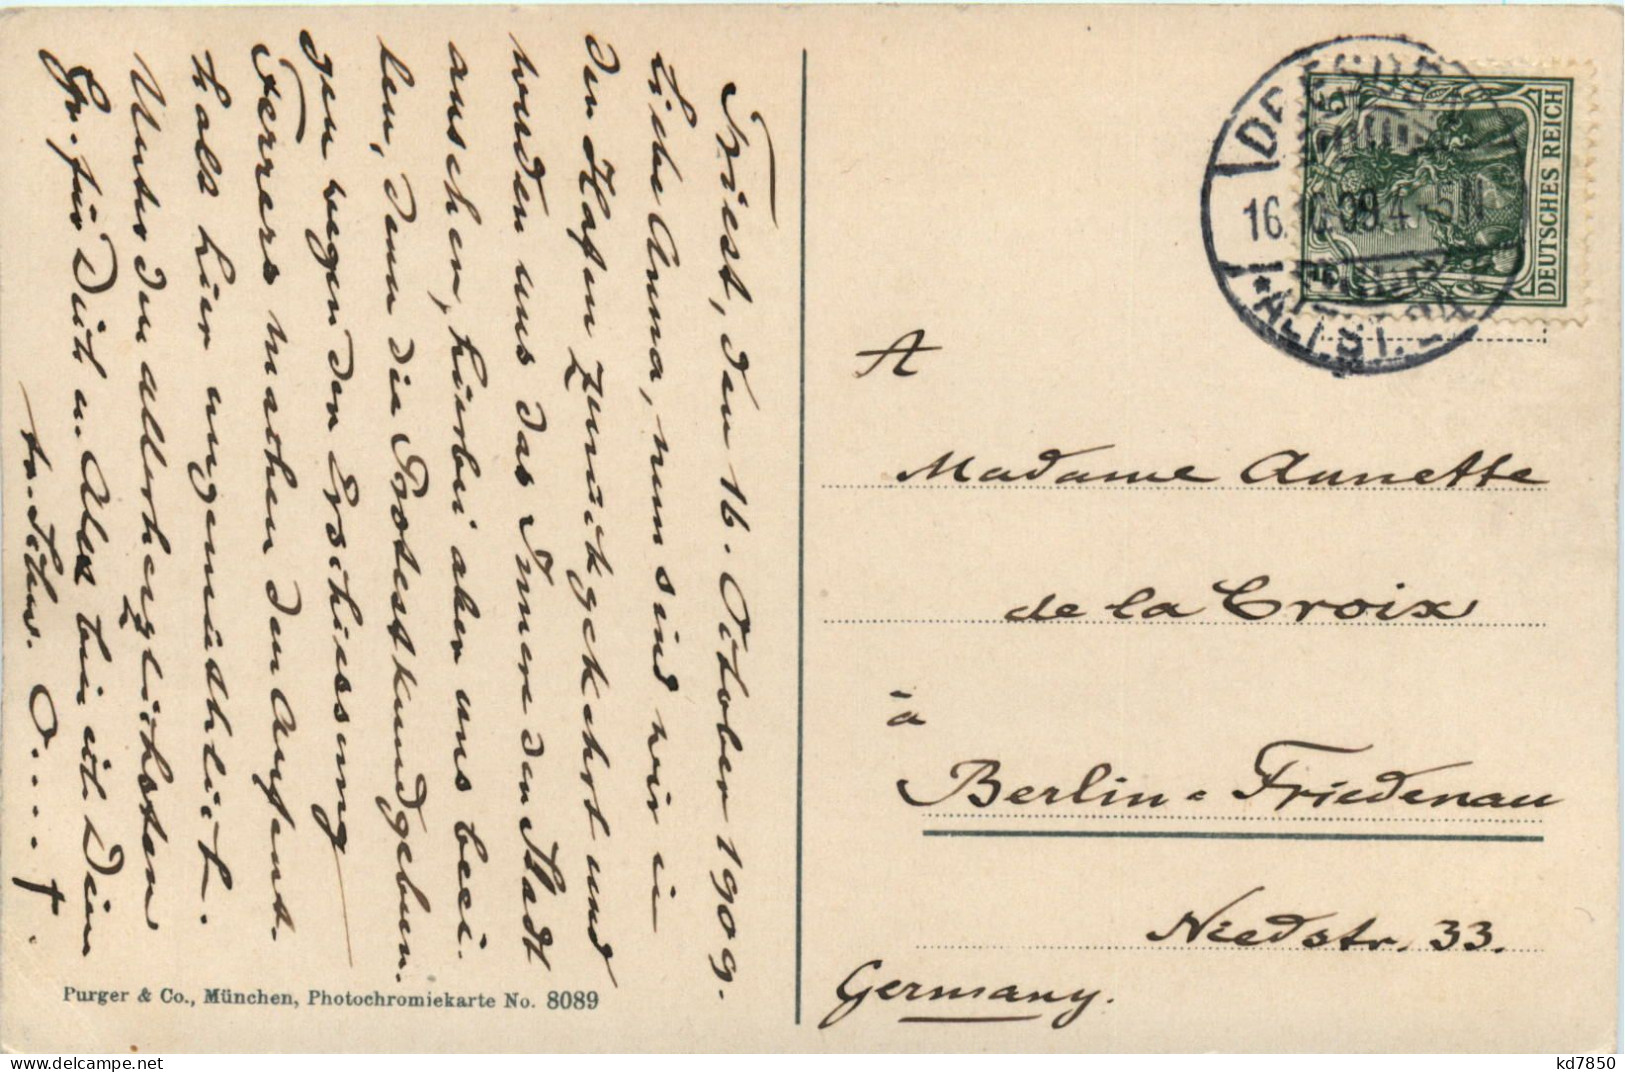 Triest, den 16. Oktober 1909.
Liebe Anna, nun sind wir in
den Hafen zurückgekehrt und
wenden uns das Innere der Stadt
ansehen, hierbei aber uns beei-
len, denn die Protestkundgebun-
gen wegen der Erschiessung
Ferrers machen den Aufent-
halt hier ungemüthlich.
Unter den allerherzlichsten
Gr. für Dich u. Alex bin ich Dein
tr. Schw. O....f.
Purger & Co., München, Photochromiekarte No. 8089
DEUTSCHES REICH
DRESDEN
16.10.09.4-5N
*ALTST. 24
A
Madame Annette
de la Croix
à
Berlin-Friedenau
Niedstr. 33.
Germany.
kd7850